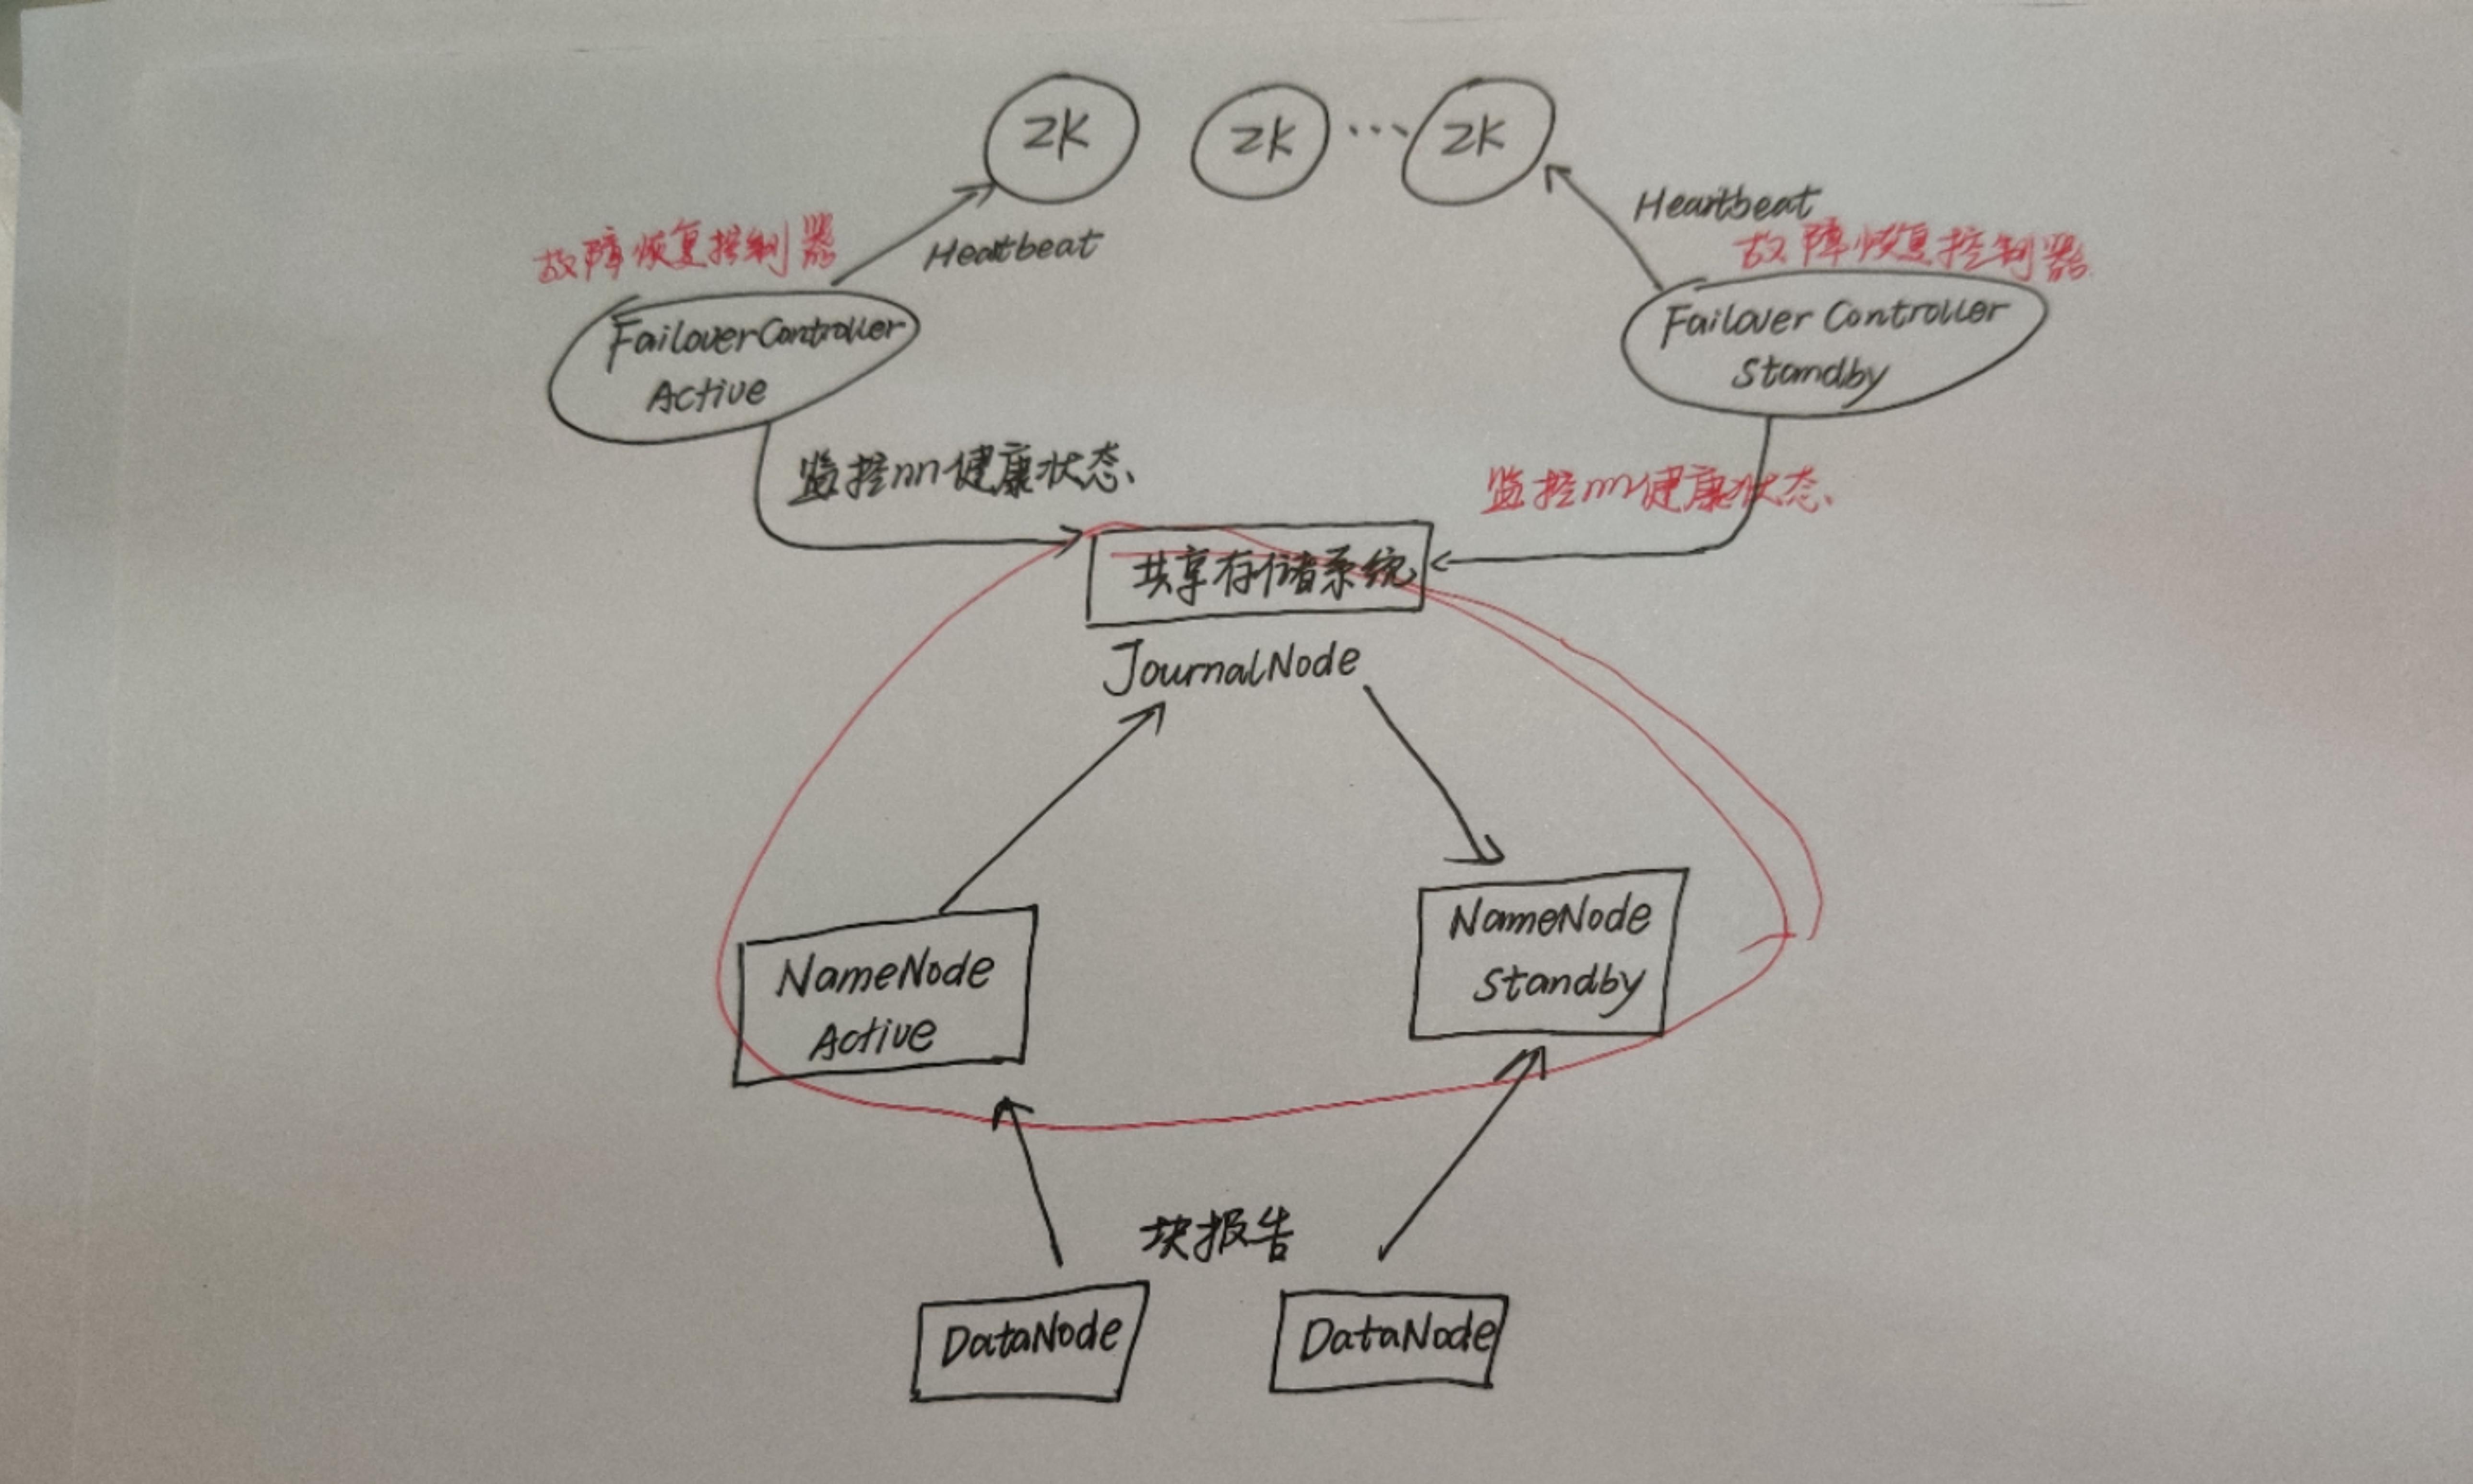 ZK
ZK
...
ZK
Heartbeat
故障恢复控制器
Heartbeat
故障恢复控制器
FailoverController
Active
Failover Controller
Standby
监控nn健康状态、
监控nn健康状态、
共享存储系统
JournalNode
NameNode
Standby
NameNode
Active
块报告
DataNode
DataNode